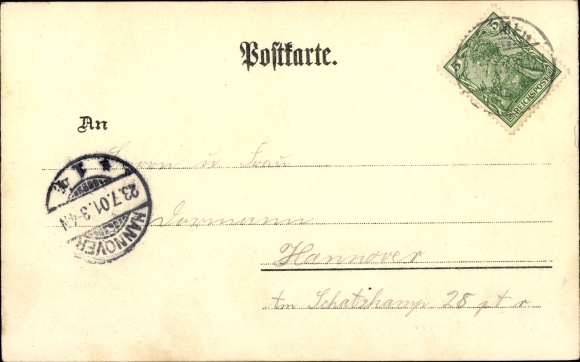 Postkarte.
5 5
REICHSPOST
An
Herrn u Frau
Dormann
Hannover
Am Schatzkamp 28 pt r.
HANNOVER
23.7.01. 3-4N
* 1 q.